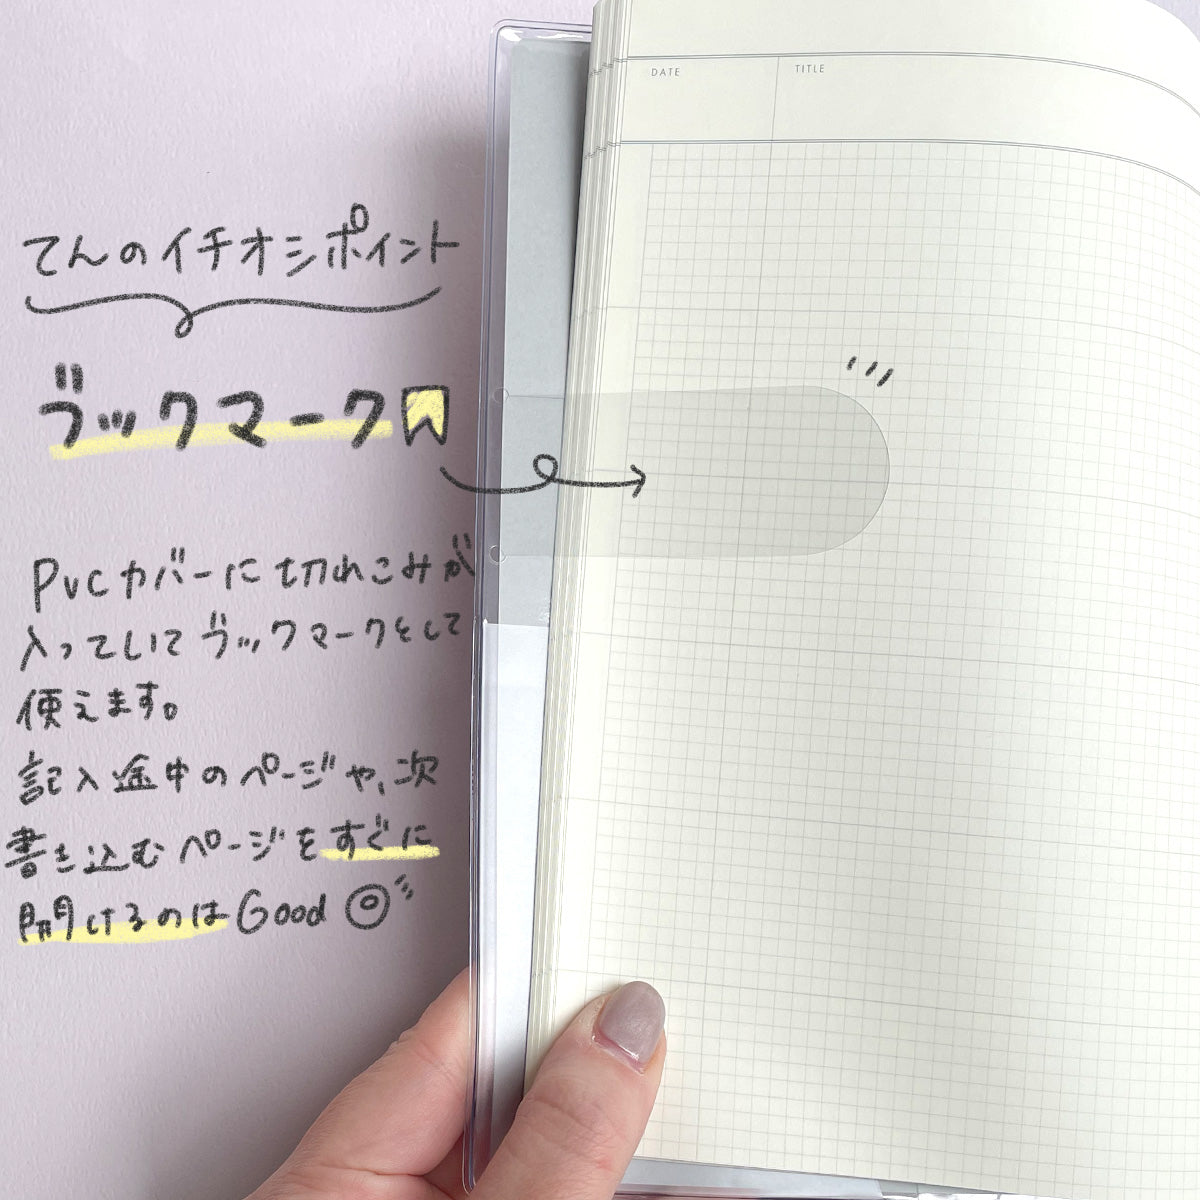 DATE
TITLE
てんのイチオシポイント
ブックマーク
PVCカバーに切れこみが
入っていてブックマークをして
使えます。
記入途中のページや、次
書き込むページをすぐに
開けるのはGood